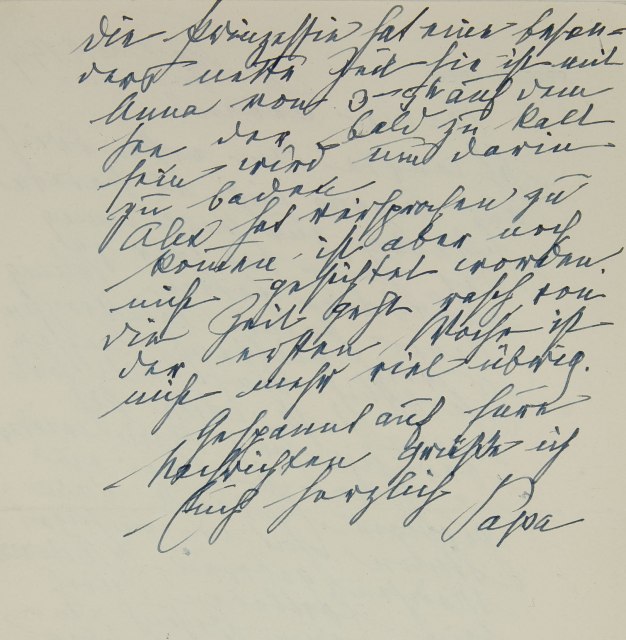 die Prinzessin hat eine beson-
ders nette Zeit sie ist mit
Anna von 3- auf dem
See der bald zu kalt
sein wird um darin
zu baden
Alex hat versprochen zu
komen, ist aber noch
nicht gesichtet worden.
die Zeit geht rasch von
der ersten Woche ist
nicht mehr viel übrig.
Gespannt auf Eure
Nachrichten grüßt ich
Euch herzlich
Papa